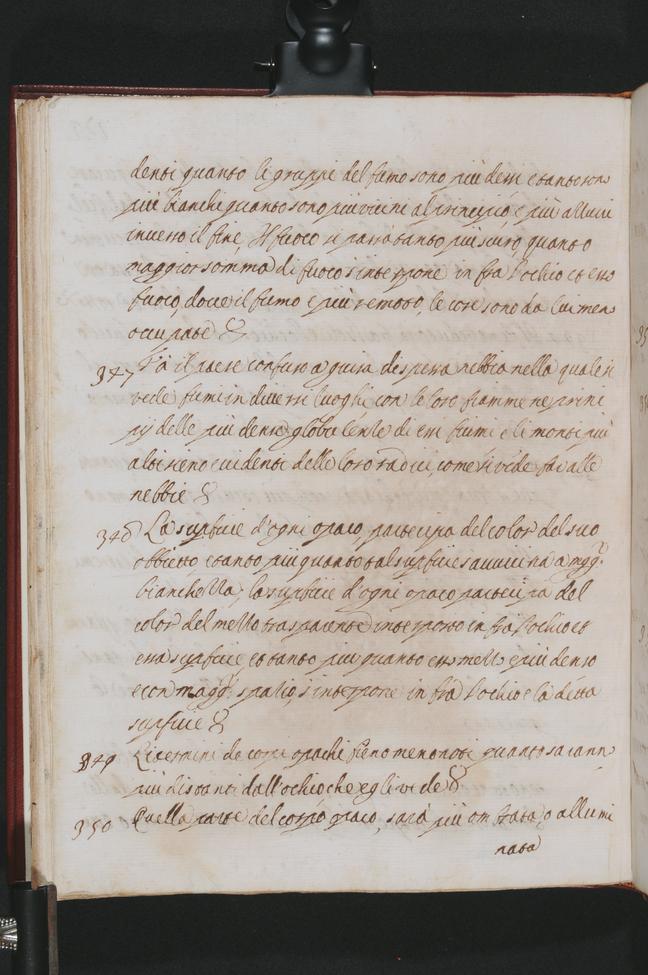 denti quanto li gruppi del fumo sono più densi e tanto son
più bianchi quanto sono piu vicini al principio, e più allumi
inverso il fine, Il fuoco si parrà tanto piu scuro, quanto
maggior somma di fuoco s'interpone in fra l'ochio et esso
fuoco, dove il fumo e più remoto, le cose sono da lui men
occupate
347 Fà il paese confuso a guisa di spessa nebbia nella quale si
vede fumi in diversi luoghi con le loro fiamme ne princi
pij delle più dense globulente di essi fumi e li monti più
alti sieno evidenti delle loro radici, come si vide fra alle
nebbie
348 La supficie d'ogni opaco, partecipa del color del suo
obbietto, e tanto più quanto tal supficie s'avvicina a magg.r
bianchezza; la supficie d'ogni opaco partecipa del
color del mezzo trasparente interposto in fra l'ochio et
essa supficie et tanto piu quanto esso mezzo e più denso
e con magg.r spatio, s'interpone in frà l'ochio e la detta
supficie
349 Li termini de corpi opachi fieno meno noti quanto saranno
più distanti dall'ochio che egli vede
350 Quella parte del corpo opaco, sarà più ombrata, o allumi
nata